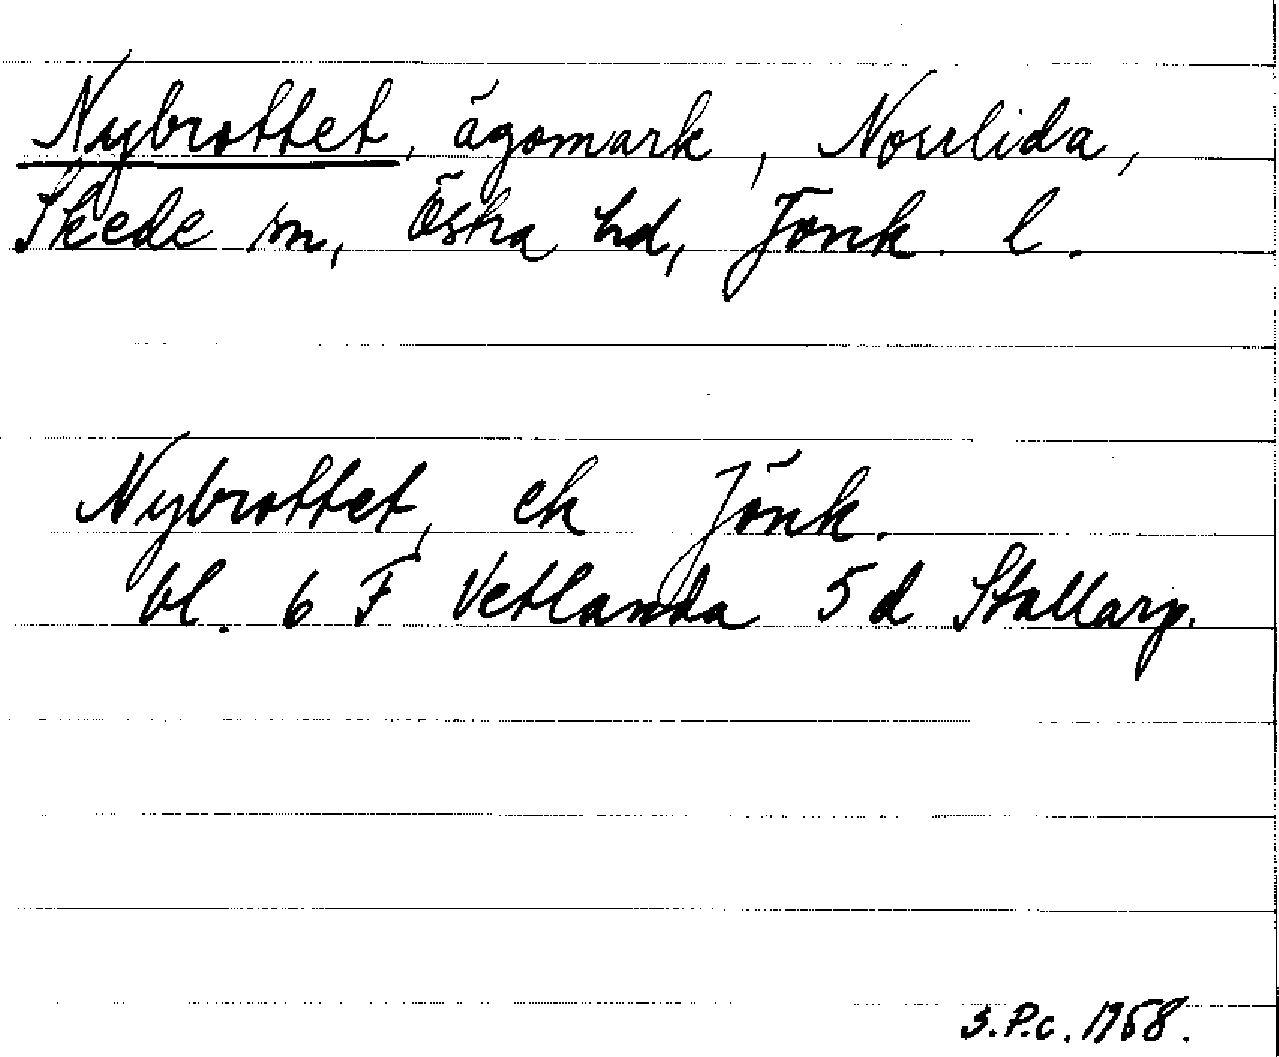 Nybrottet, ägomark, Norrlida,
Skede sn, Östra hd, Jönk. l.
Nybrottet, ek Jönk.
bl. 6 F Vetlanda 5 d Stallarp.
S.P.c. 1958.